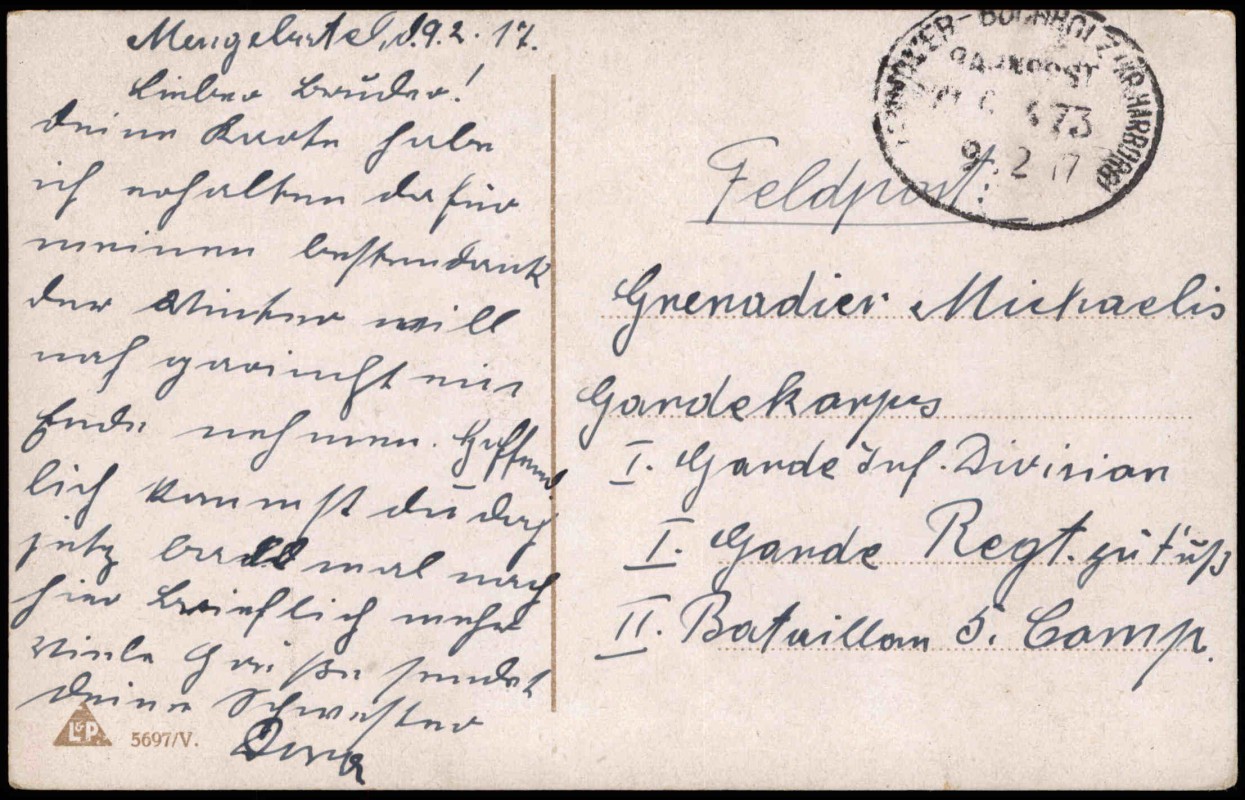 Mengebostel, d. 9.2.17.
Lieber Bruder!
deine Karte habe
ich erhalten dafür
meinen bestendank
der Winter will
noch garnicht ein
Ende nehmen. Hoffend
lich kommst du doch
jetz bald mal nach
hier brieflich mehr
viele Grüße sendet
deine Schwester
Dora
L&P.
5697/V.
BUCHHOLZ (KR. HARBURG)
BAHNPOST
ZUG 973
9. 2 17
Feldpost.
Grenadier Michaelis
Gardekorps
I. Garde Inf. Division
I. Garde Regt. zu Fuß
II. Bataillon 5. Comp.